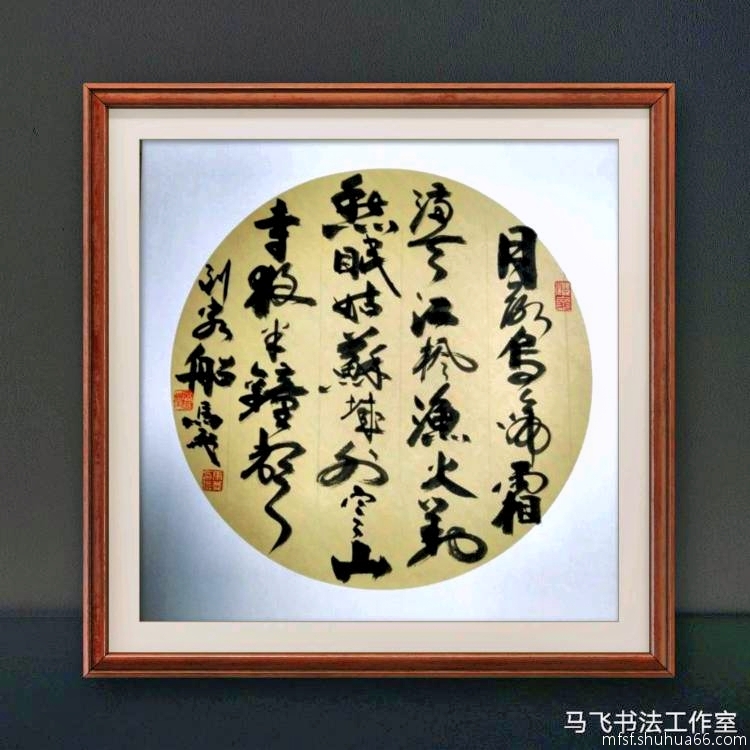 月落烏啼霜
滿天江楓漁火對
愁眠姑蘇城外寒山
寺夜半鐘聲
到客船
馬飛
马飞书法工作室
mfsf.shuhua66.com